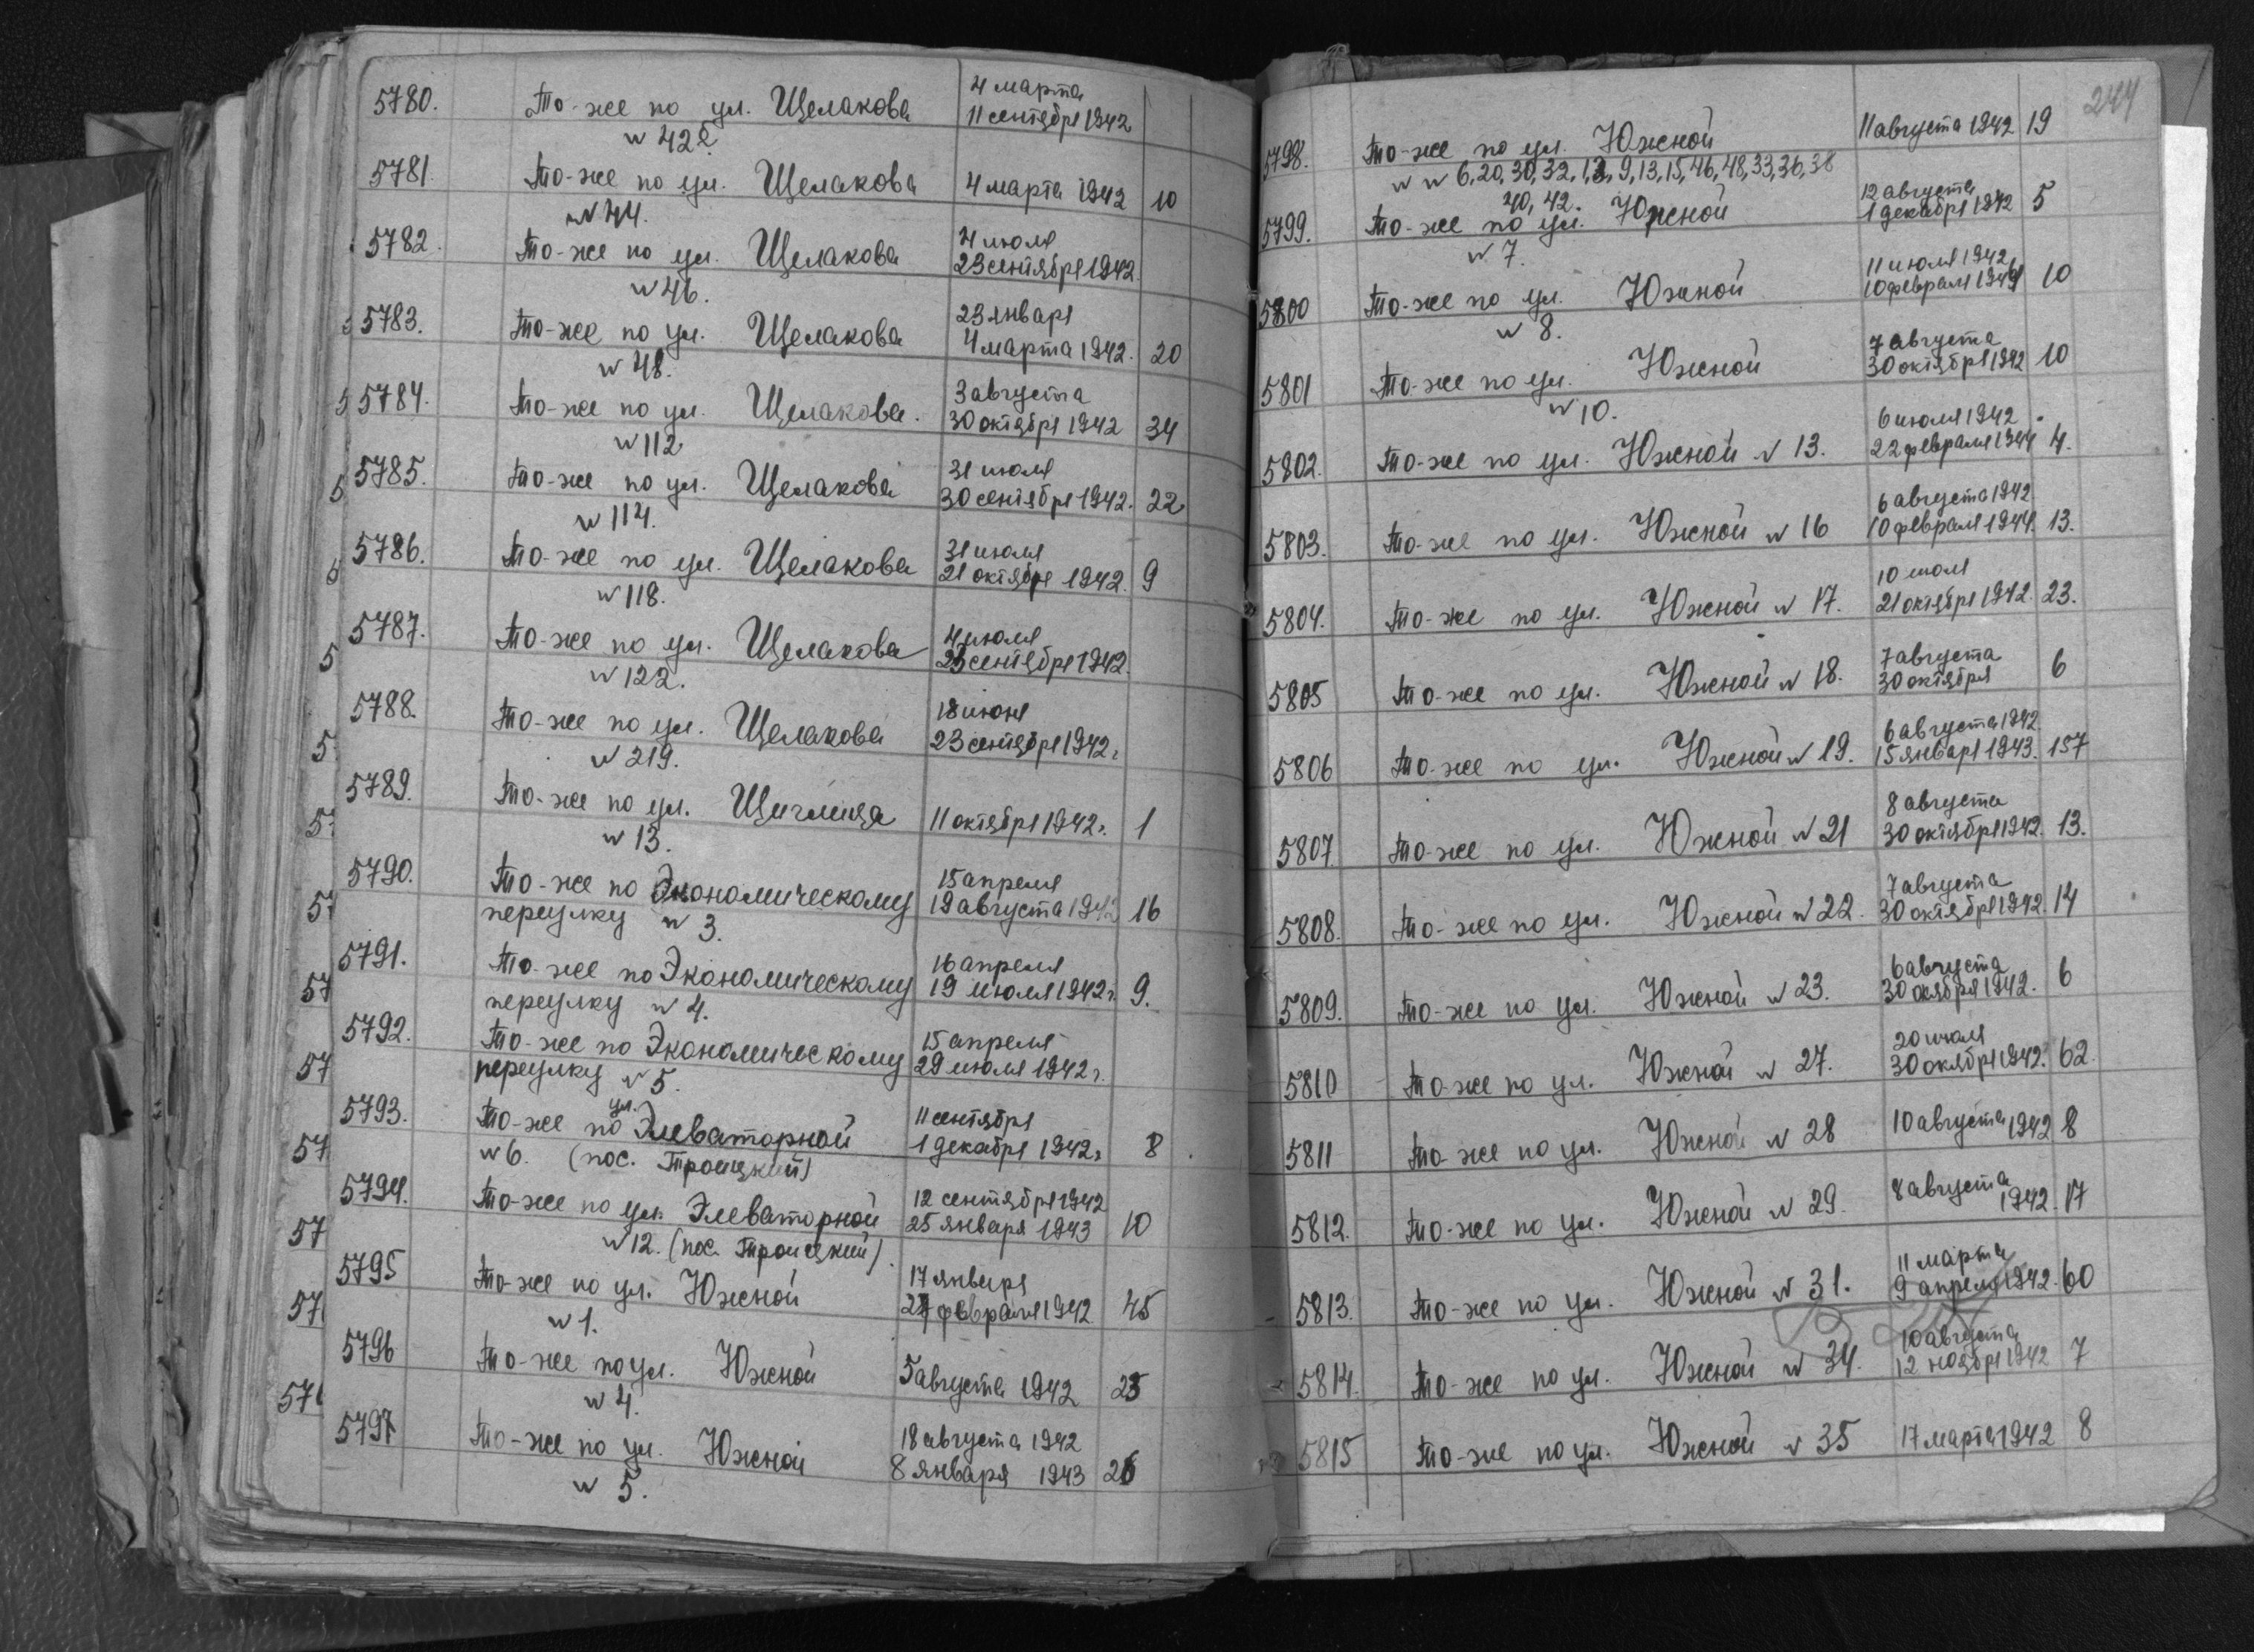 5780. То-же по ул. Щелакова 4 марта
11 сентября 1942
№ 42
5781. То-же по ул. Щелакова 4 марта 1942 10
№ 44.
5782. То-же по ул. Щелакова 4 июля
23 сентября 1942.
№ 46.
5783. То-же по ул. Щелакова 23 января
4 марта 1942. 20
№ 48.
5784. То-же по ул. Щелакова. 3 августа
30 октября 1942 34
№ 112
5785. То-же по ул. Щелакова 31 июля
30 сентября 1942. 22
№ 114.
5786. То-же по ул. Щелакова 31 июля
21 октября 1942. 9
№ 118.
5787. То-же по ул. Щелакова 4 июля
23 сентября 1942.
№ 122.
5788. То-же по ул. Щелакова 18 июня
23 сентября 1942 г.
№ 219.
5789. То-же по ул. Щиглица 11 октября 1942 г. 1
№ 13.
5790. То-же по Экономическому 15 апреля
переулку № 3. 19 августа 1942 16
5791. То-же по Экономическому 16 апреля
переулку № 4. 19 июля 1942 г. 9.
5792. То-же по Экономическому 15 апреля
переулку № 5. 29 июля 1942 г.
5793. То-же по ул. Элеваторной 11 сентября
№ 6. (пос. Троицкий) 1 декабря 1942 г 8
5794. То-же по ул. Элеваторной 12 сентября 1942
№ 12. (пос. Троицкий). 25 января 1943 10
5795 То-же по ул. Южной 17 января
февраля 1942 45
№ 1.
5796 То-же по ул. Южной 5 августа 1942 25
№ 4.
5797 То-же по ул. Южной 18 августа 1942
8 января 1943 26
№ 5.
244
5798. То-же по ул. Южной 11 августа 1942 19
№ № 6, 20, 30, 32, 9, 13, 15, 46, 48, 33, 36, 38
40, 42.
5799. То-же по ул. Южной 12 августа
1 декабря 1942 5
№ 7.
5800 То-же по ул. Южной 11 июля 1942
10 февраля 1944 10
№ 8.
5801 То-же по ул. Южной 7 августа
30 октября 1942 10
№ 10.
5802. То-же по ул. Южной № 13. 6 июля 1942
22 февраля 1944 4.
5803. То-же по ул. Южной № 16 6 августа 1942
10 февраля 1944. 13.
5804. То-же по ул. Южной № 17. 10 июля
21 октября 1942. 23.
5805 То-же по ул. Южной № 18. 7 августа
30 октября 6
5806 То-же по ул. Южной № 19. 6 августа 1942
15 января 1943. 157
5807 То-же по ул. Южной № 21 8 августа
30 октября 1942. 13.
5808. То-же по ул. Южной № 22. 7 августа
30 октября 1942. 14
5809. То-же по ул. Южной № 23. 6 августа
30 окября 1942. 6
5810 То-же по ул. Южной № 27. 20 июля
30 окября 1942. 62.
5811 То-же по ул. Южной № 28 10 августа 1942 8
5812. То-же по ул. Южной № 29. 8 августа
1942. 17
5813. То-же по ул. Южной № 31. 11 марта
9 апреля 1942. 60
5814. То-же по ул. Южной № 34. 10 августа
12 ноября 1942 7
5815 То-же по ул. Южной № 35 17 марта 1942 8